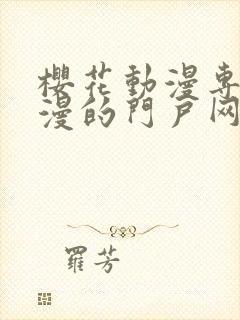 櫻花動漫專
漫的門戶网
羅芳